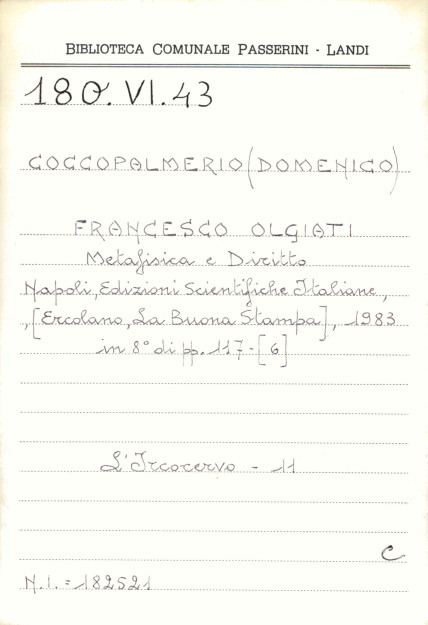 BIBLIOTECA COMUNALE PASSERINI - LANDI
180.VI.43
COCCOPALMERIO (DOMENICO)
FRANCESCO OLGIATI
Metafisica e Diritto
Napoli, Edizioni Scientifiche Italiane,
,[Ercolano, La Buona Stampa], 1983
in 8° di pp. 117-[6]
L'Ircocervo - 11
C
N.I. = 182521